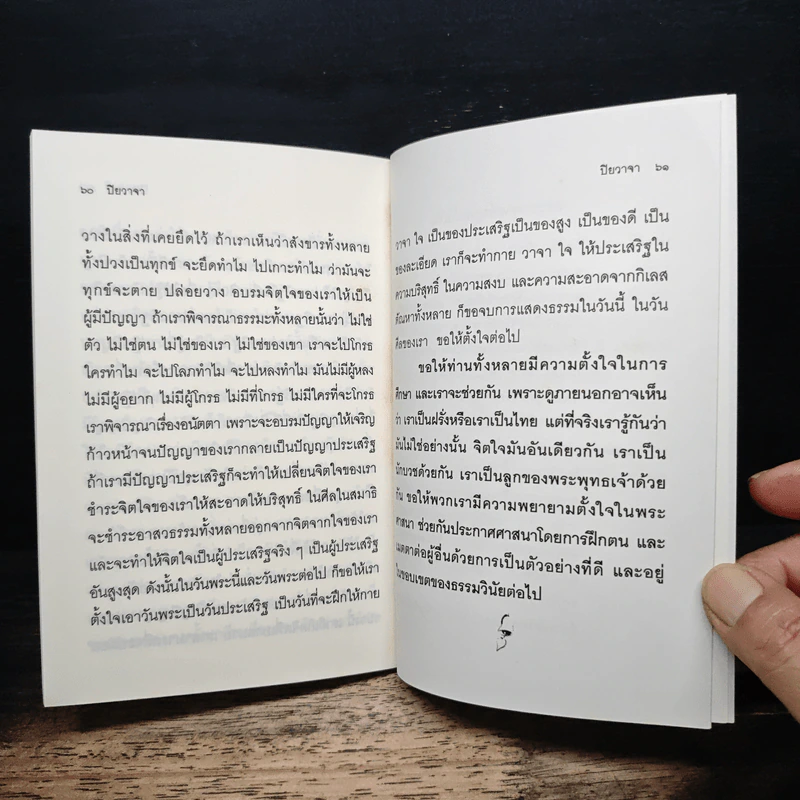 ๖๐ ปิยวาจา
วางในสิ่งที่เคยยึดไว้ ถ้าเราเห็นว่าสังขารทั้งหลาย
ทั้งปวงเป็นทุกข์ จะยึดทำไม ไปเกาะทำไม ว่ามันจะ
ทุกข์จะตาย ปล่อยวาง อบรมจิตใจของเราให้เป็น
ผู้มีปัญญา ถ้าเราพิจารณาธรรมะทั้งหลายนั้นว่า ไม่ใช่
ตัว ไม่ใช่ตน ไม่ใช่ของเรา ไม่ใช่ของเขา เราจะไปโกรธ
ใครทำไม จะไปโลภทำไม จะไปหลงทำไม มันไม่มีผู้หลง
ไม่มีผู้อยาก ไม่มีผู้โกรธ ไม่มีที่โกรธ ไม่มีใครที่จะโกรธ
เราพิจารณาเรื่องอนัตตา เพราะจะอบรมปัญญาให้เจริญ
ก้าวหน้าจนปัญญาของเรากลายเป็นปัญญาประเสริฐ
ถ้าเรามีปัญญาประเสริฐก็จะทำให้เปลี่ยนจิตใจของเรา
ชำระจิตใจของเราให้สะอาดให้บริสุทธิ์ ในศีลในสมาธิ
จะชำระอาสวธรรมทั้งหลายออกจากจิตจากใจของเรา
และจะทำให้จิตใจเป็นผู้ประเสริฐจริง ๆ เป็นผู้ประเสริฐ
อันสูงสุด ดังนั้นในวันพระนี้และวันพระต่อไป ก็ขอให้เรา
ตั้งใจเอาวันพระเป็นวันประเสริฐ เป็นวันที่จะฝึกให้กาย
ปิยวาจา ๖๑
วาจา ใจ เป็นของประเสริฐเป็นของสูง เป็นของดี เป็น
ของละเอียด เราก็จะทำกาย วาจา ใจ ให้ประเสริฐใน
ความบริสุทธิ์ ในความสงบ และความสะอาดจากกิเลส
ตัณหาทั้งหลาย ก็ขอจบการแสดงธรรมในวันนี้ ในวัน
ศีลของเรา ขอให้ตั้งใจต่อไป
ขอให้ท่านทั้งหลายมีความตั้งใจในการ
ศึกษา และเราจะช่วยกัน เพราะดูภายนอกอาจเห็น
ว่า เราเป็นฝรั่งหรือเราเป็นไทย แต่ที่จริงเรารู้กันว่า
มันไม่ใช่อย่างนั้น จิตใจมันอันเดียวกัน เราเป็น
นักบวชด้วยกัน เราเป็นลูกของพระพุทธเจ้าด้วย
กัน ขอให้พวกเรามีความพยายามตั้งใจในพระ
ศาสนา ช่วยกันประกาศศาสนาโดยการฝึกตน และ
เมตตาต่อผู้อื่นด้วยการเป็นตัวอย่างที่ดี และอยู่
ในขอบเขตของธรรมวินัยต่อไป